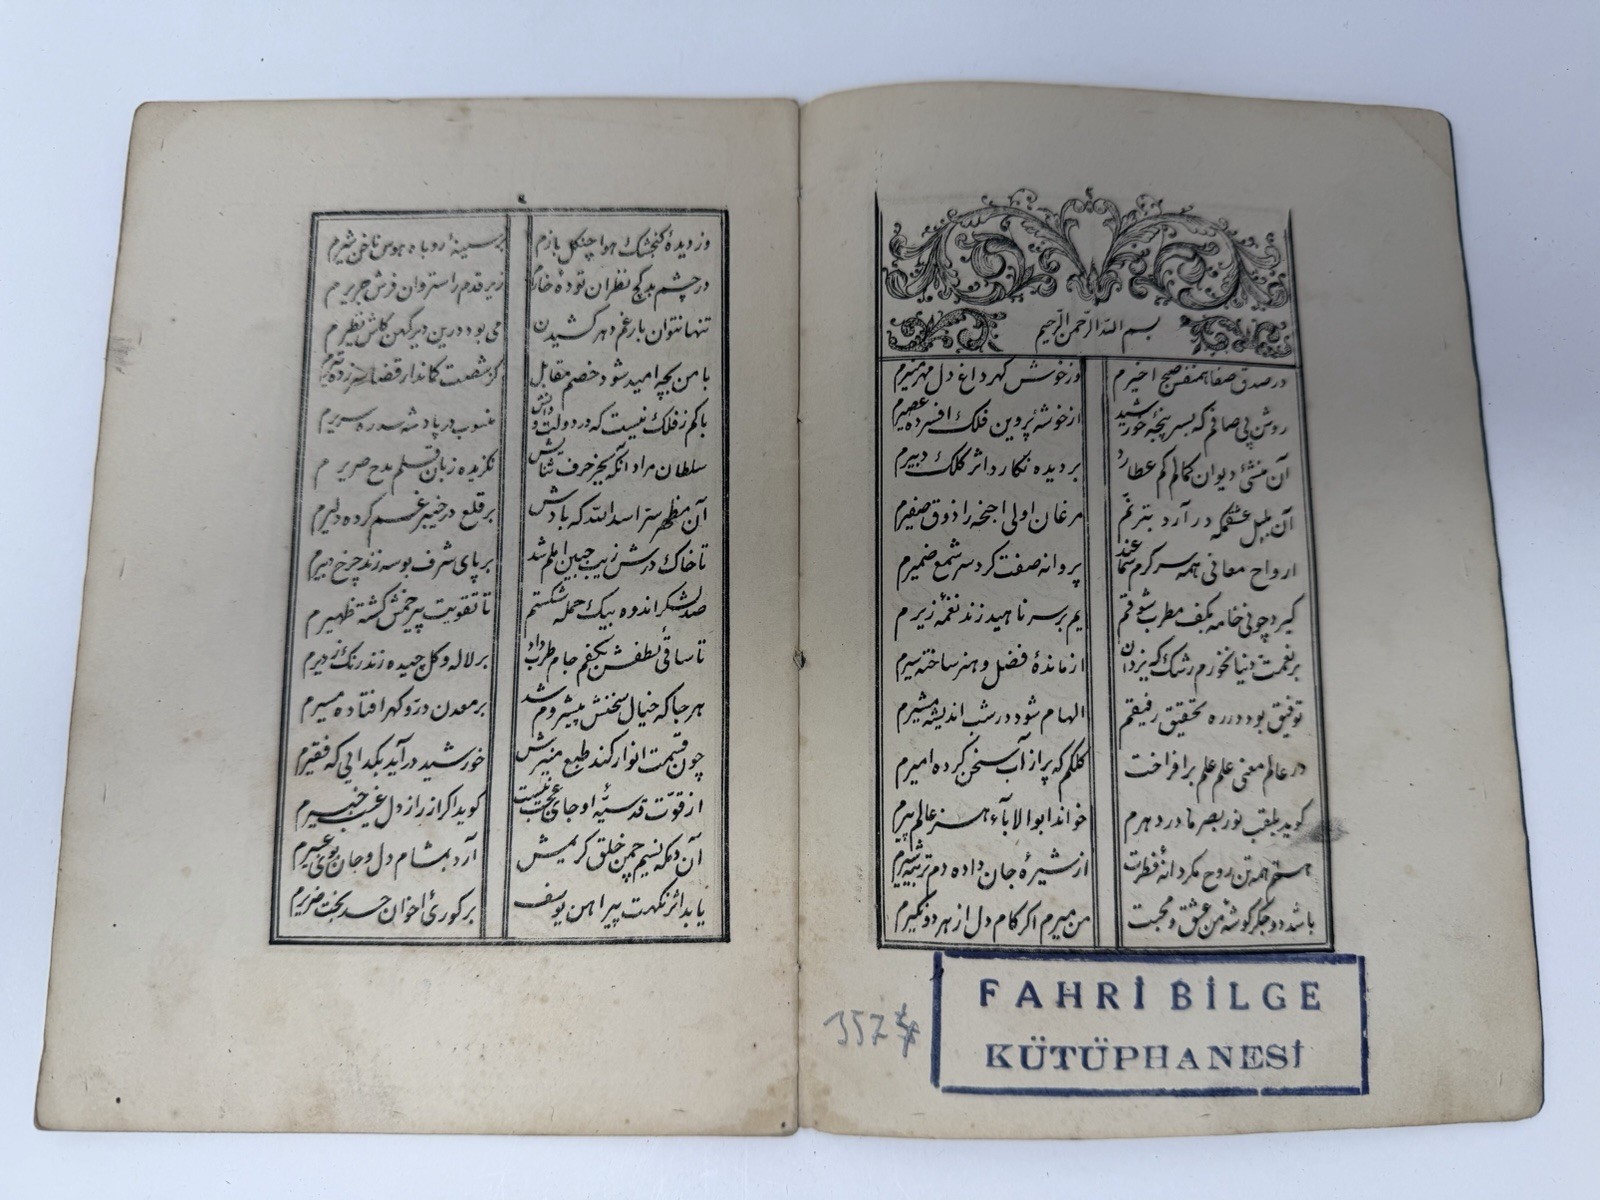 بسم الله الرحمن الرحیم
در صدق و صفا همنفس صبح اخیرم وز خوش گهر داغ دل مهر منیرم
روشن پی صافم که بسر پنجه خورشید از خوشهٔ پروین فلک افشرده عصیرم
آن منشئ دیوان کمالم کم عطارد بر دیده نگارد اثر کلک دبیرم
آن بلبل عشقم که در آرد بترنم مرغان اولی اجنحه را ذوق صفیرم
ارواح معانی همه سرگرم سماعند پروانه صفت کرد سر شمع ضمیرم
گیرد چو نی خامه بکف مطرب شوقم بر سر ناهید زند نغمهٔ زیرم
بر نعمت دنیا نخورم رشک که یزدان از ماندهٔ فضل و هنر ساخته سیرم
توفیق بود در ره تحقیق رفیقم الهام شود در شب اندیشه مشیرم
در عالم معنی علم علم برافراخت کلکم که پر از آب سخن کرده امیرم
گوید بلقب نور بصر مادر دهرم خواند ابو الاباء هنر عالم پیرم
هستم همه تن روح مکر دانهٔ فطرت از شیرهٔ جان داده دم تربیه شیرم
باشد دو جگر گوشهٔ من عشق و محبت من میرم اگر کام دل از هر دو نگیرم
FAHRİ BİLGE
KÜTÜPHANESİ
357
٤
وز دیدهٔ گنجشک هوا چنگل بازم بر سینهٔ روباه هوس ناخن شیرم
در چشم بد کج نظران تودهٔ خارم زیر قدم راست روان فرش حریرم
تنها نتوان بار غم دهر کشیدن می بود درین دیر کهن کاش نظیرم
با من بچه امید شود خصم مقابل کز شصت کماندار قضا زده تیرم
با کم ز فلک نیست که در دولت و دانش منسوب در پادشه سدره سریرم
سلطان مراد آنکه بجز حرف ثنایش نگزیده زبان قلم مدح صریرم
آن مظهر سر اسد الله که یادش بر قلع در خیبر غم کرده دلیرم
تا خاک درش زیب جبین املم شد بر پای شرف بوسه زند چرخ دبیرم
صد لشکر اندوه بیک حمله شکستم تا تقویت پیر خمش گشته ظهیرم
تا ساقئ لطفش بکفم جام طرب داد بر لاله و گل خنده زند رنگ زریرم
هر جا که خیال سخنش پیشروم شد بر معدن در و گهر افتاده مسیرم
چون قسمت انوار کند طبع منیرش خورشید در آید بگدایی که فقیرم
از قوت قدسیهٔ او جای عجب نیست گوید اگر از راز دل غیب خبیرم
آن دم که نسیم چمن خلق کریمش آرد بمشام دل و جان بوی عبیرم
یابد اثر نکهت پیراهن یوسف بر کورئ اخوان حسد بخت ضریرم